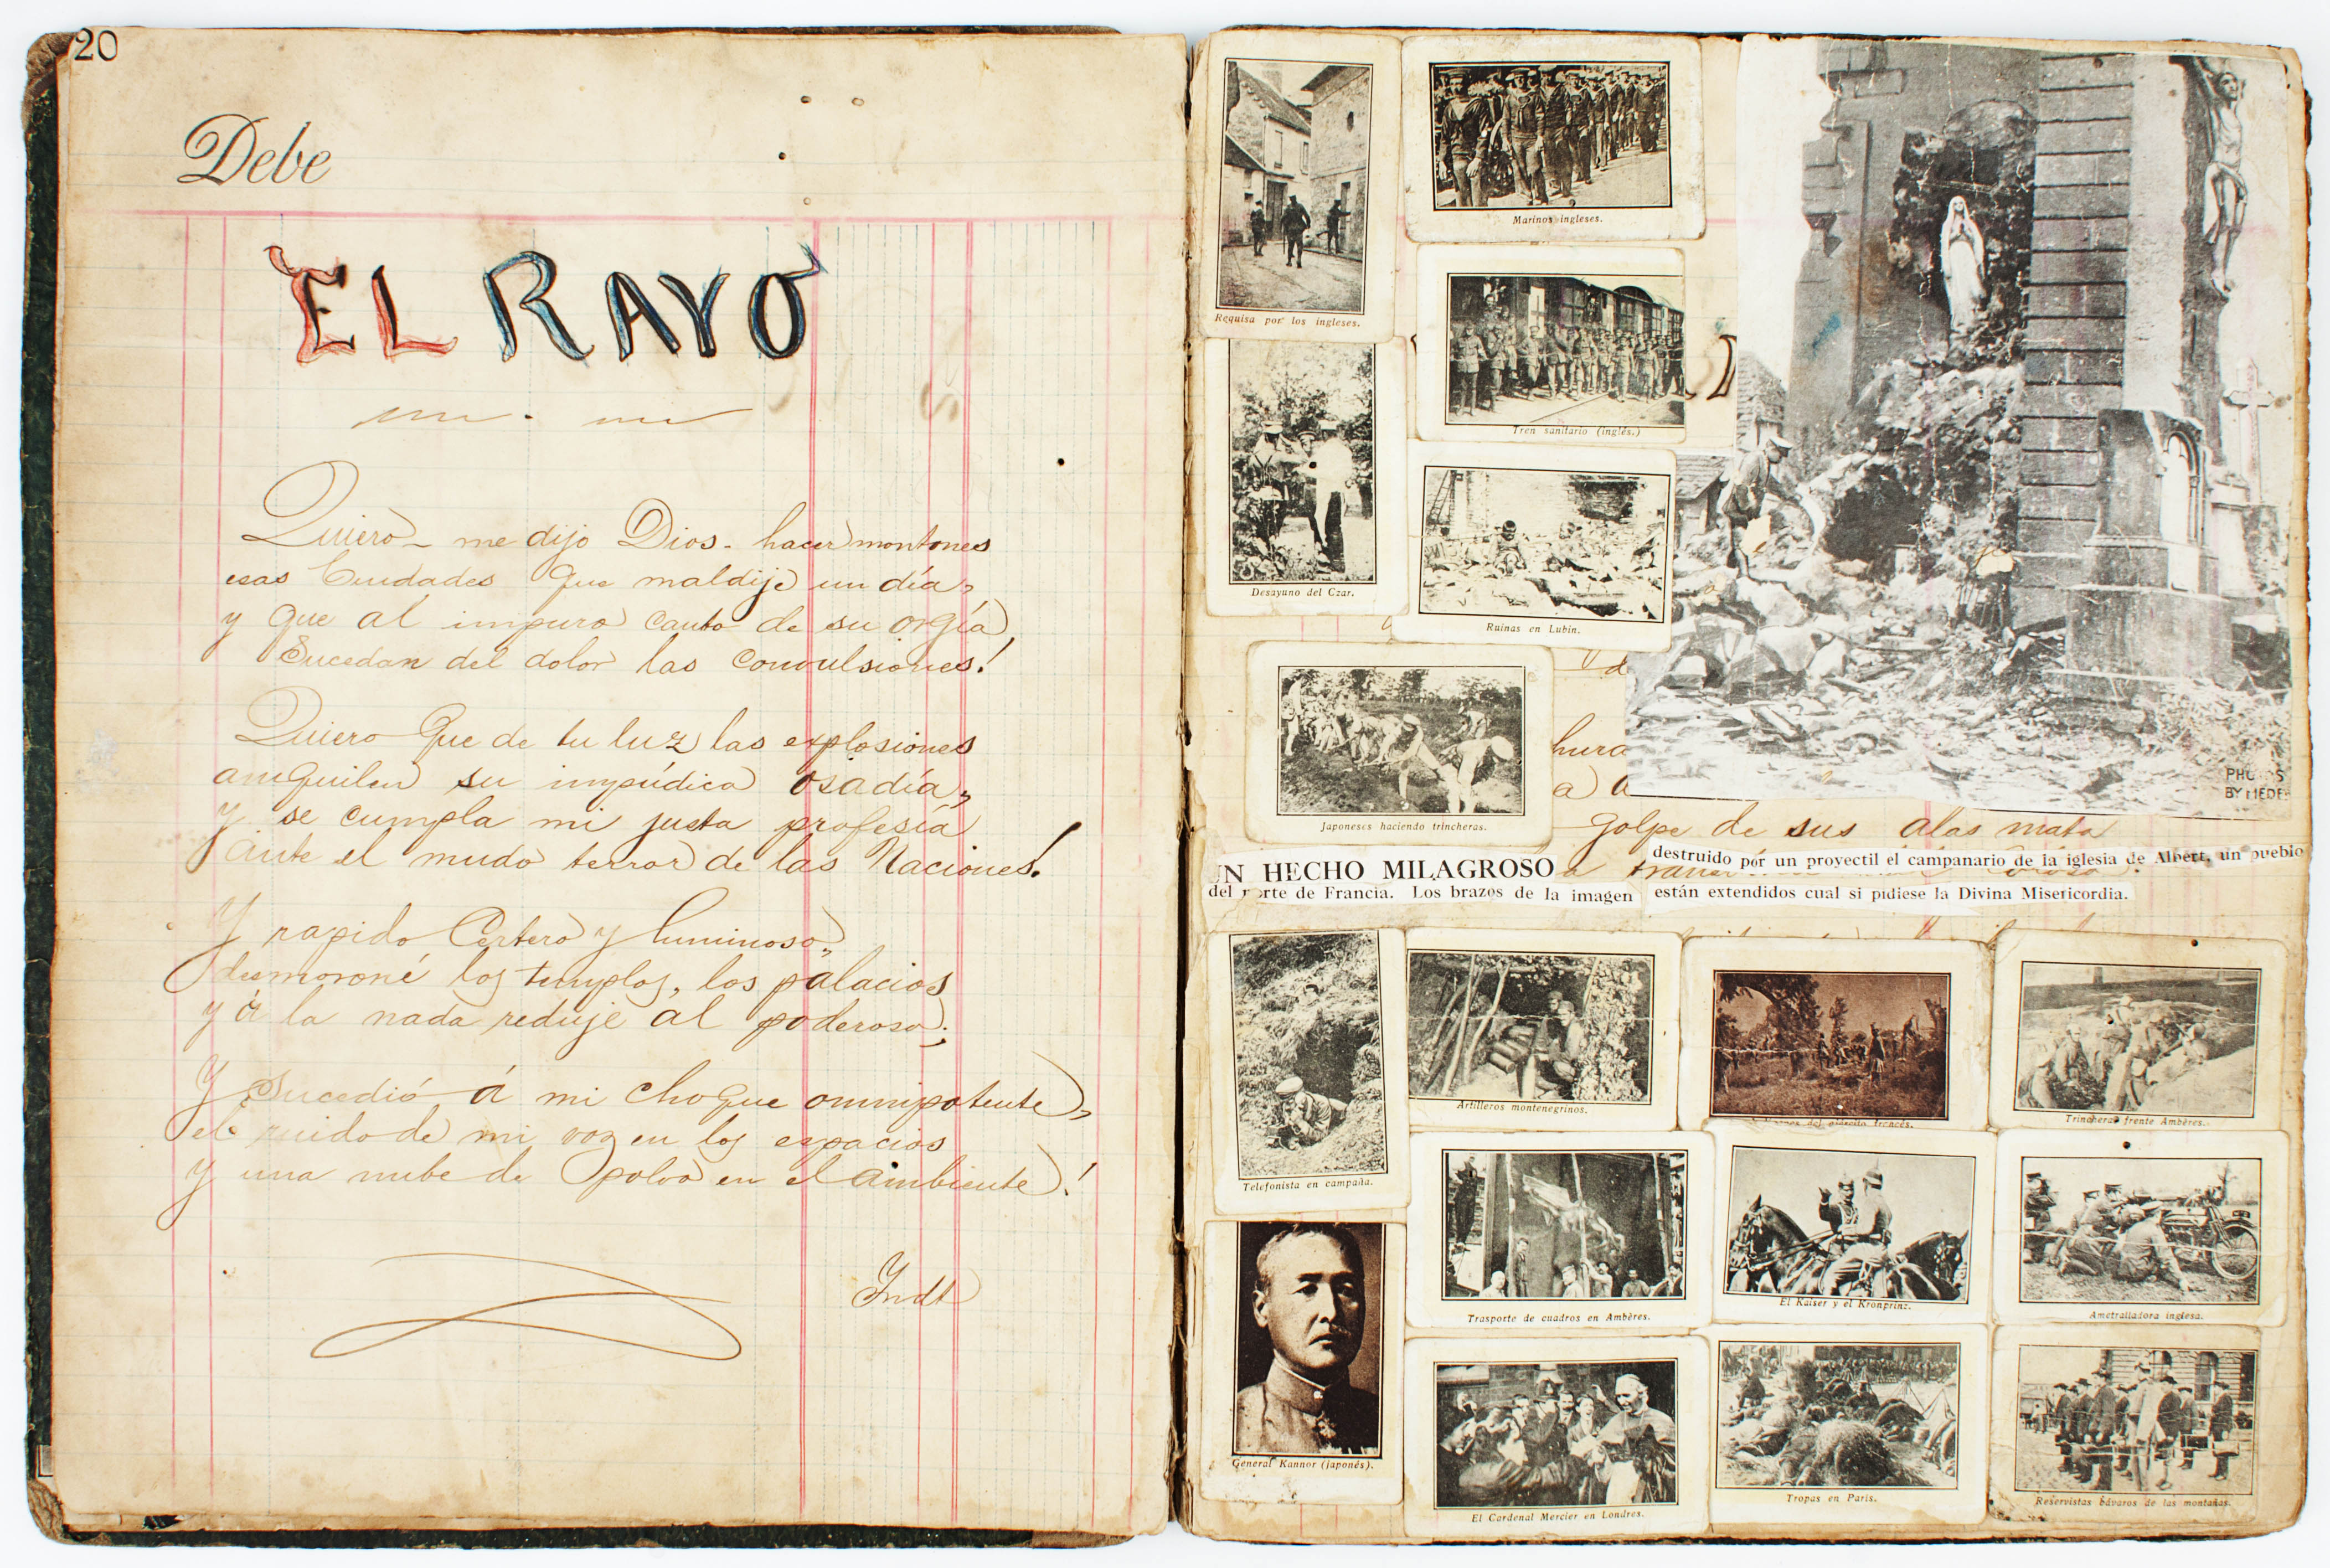 20
Debe
EL RAYO
Quiero - me dijo Dios - hacer montones
esas Ciudades que maldije un día,
y que al impuro canto de su orgía
Sucedan del dolor las convulsiones!
Quiero que de tu luz las explosiones
aniquilen su impúdica osadía,
y se cumpla mi justa profesía
ante el mudo terror de las Naciones!
Y rapido Certero y luminoso,
desmoroné los templos, los palacios
y á la nada reduje al poderoso;
Y Sucedió á mi choque omnipotente,
el ruido de mi voz en los espacios
y una nube de polvo en el ambiente!
Requisa por los ingleses.
Marinos ingleses.
Tren sanitario (inglés.)
Desayuno del Czar.
Ruinas en Lubin.
Japoneses haciendo trincheras.
hura
a a
PHOTOS
BY MEDE
golpe de sus alas mata
UN HECHO MILAGROSO
destruido por un proyectil el campanario de la iglesia de Albert, un pueblo
del norte de Francia. Los brazos de la imagen están extendidos cual si pidiese la Divina Misericordia.
Telefonista en campaña.
Artilleros montenegrinos.
del ejército francés.
Trincheras frente Ambères.
General Kannor (japonés).
Trasporte de cuadros en Ambères.
El Kaiser y el Kronprinz.
Ametralladora inglesa.
El Cardenal Mercier en Londres.
Tropas en Paris.
Reservistas bávaros de las montañas.